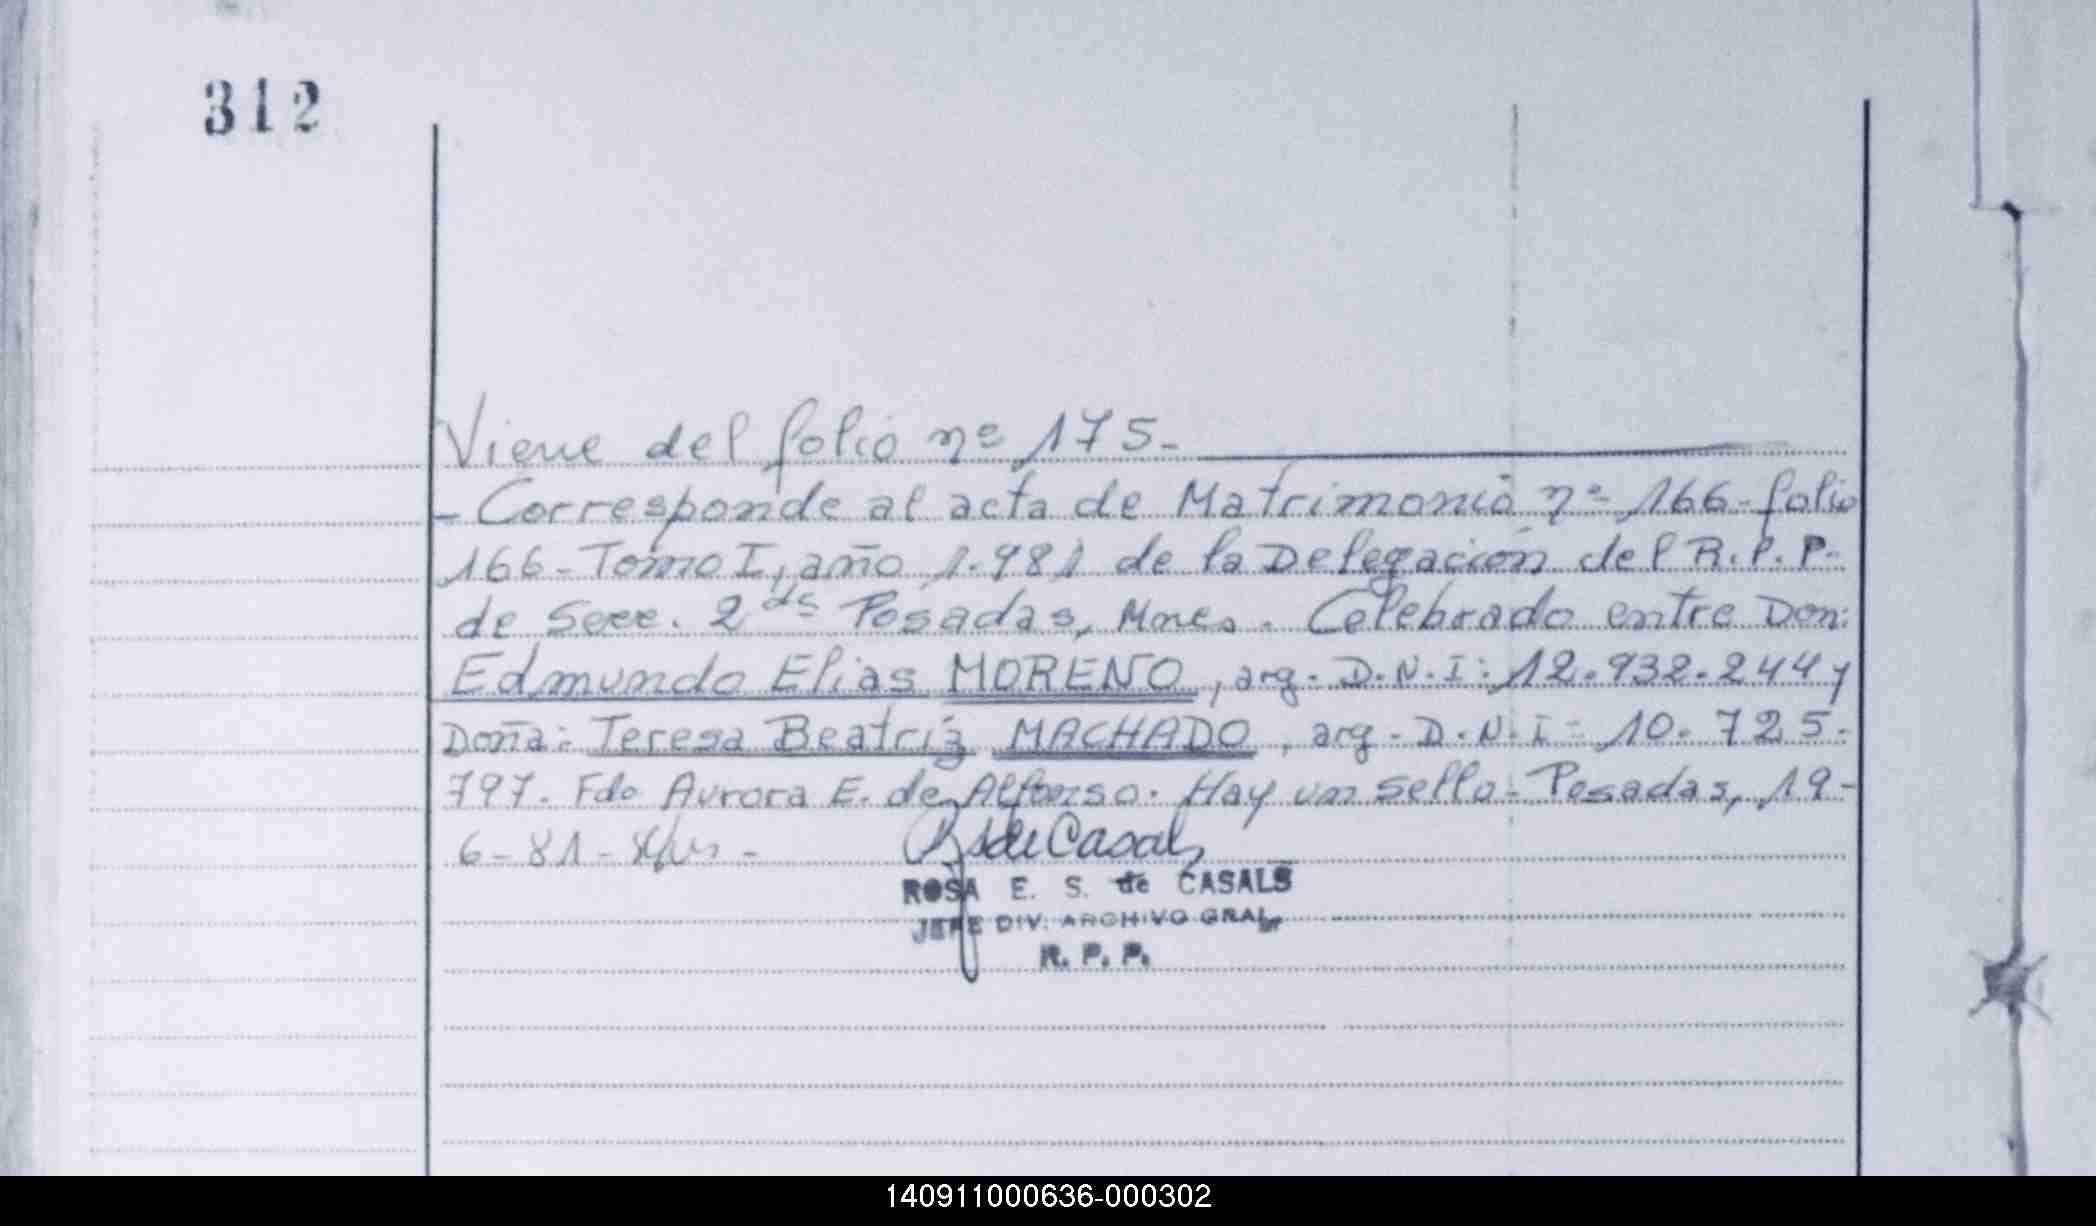 312
Viene del folio nº 175-
- Corresponde al acta de Matrimonio nº 166- folio
166- Tomo I, año 1.981 de la Delegación del R.P.P.
de Secc. 2da Posadas, Mnes. Celebrado entre Don:
Edmundo Elias MORENO, arg. D.N.I: 12.932.244 y
Doña: Teresa Beatriz MACHADO, arg. D.N.I: 10.725.
797. Fdo Aurora E. de Alfonso. Hay un sello. Posadas, 19-
6-81-
ROSA E. S. de CASALS
JEFE DIV. ARCHIVO GRAL
R. P. P.
140911000636-000302